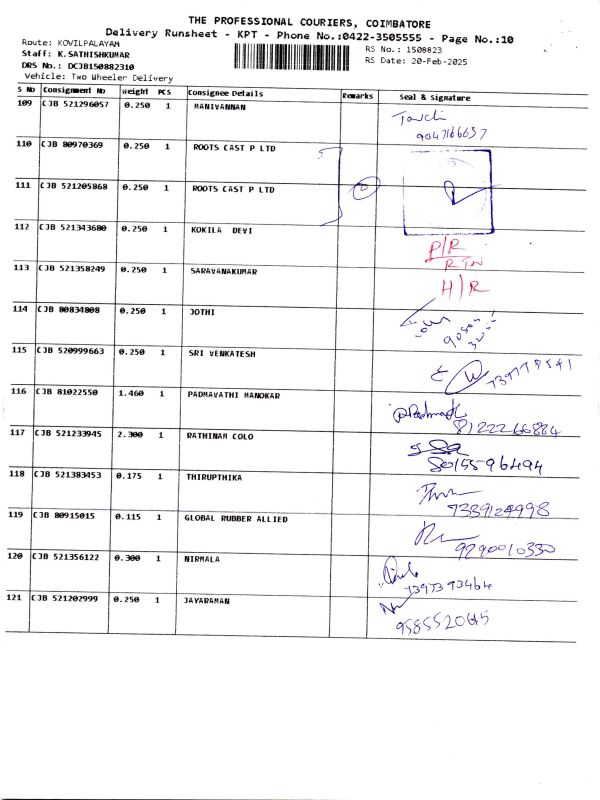 THE PROFESSIONAL COURIERS, COIMBATORE
Delivery Runsheet - KPT - Phone No.:0422-3505555 - Page No.:10
Route: KOVILPALAYAM
Staff: K.SATHISHKUMAR
DRS No.: DCJB150882310
Vehicle: Two Wheeler Delivery
RS No.: 1508823
RS Date: 20-Feb-2025
S No Consignment No Weight PCS Consignee Details Remarks Seal & Signature
109 CJB 521296057 0.250 1 MANIVANNAN
9047166657
110 CJB 80970369 0.250 1 ROOTS CAST P LTD
111 CJB 521205868 0.250 1 ROOTS CAST P LTD
112 CJB 521343680 0.250 1 KOKILA DEVI P/R
RTN
113 CJB 521358249 0.250 1 SARAVANAKUMAR H/R
114 CJB 80834808 0.250 1 JOTHI
115 CJB 520999663 0.250 1 SRI VENKATESH
116 CJB 81022550 1.460 1 PADMAVATHI MANOKAR
117 CJB 521233945 2.300 1 RATHINAM COLO
8015596494
118 CJB 521383453 0.175 1 THIRUPTHIKA
7339124998
119 CJB 80915015 0.115 1 GLOBAL RUBBER ALLIED
9290010330
120 CJB 521356122 0.300 1 NIRMALA
7397393464
121 CJB 521202999 0.250 1 JAYARAMAN